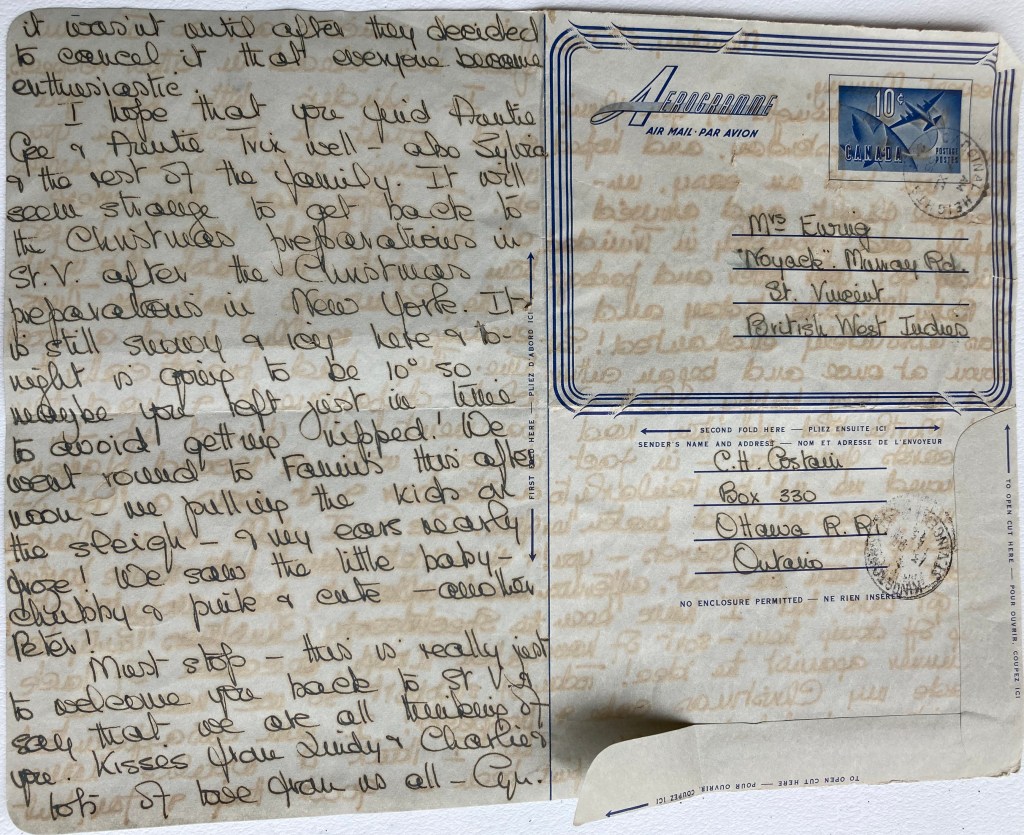 it wasn't until after they decided
to cancel it that everyone became
enthusiastic.
I hope that you find Auntie
Gee & Auntie Trix well – also Sylvia
& the rest of the family. It will
seem strange to get back to
the Christmas preparations in
St. V. after the Christmas
preparations in New York. It
is still snowy & icy here & to-
night is going to be 10° so
maybe you left just in time
to avoid getting nipped! We
went round to Fannis this after
noon – we pulling the kids on
the sleigh – & my ears nearly
froze! We saw the little baby –
chubby & pink & cute – another
Peter!
Must stop – this is really just
to welcome you back to St V. &
say that we are all thinking of
you. Kisses from Lindy & Charlie &
lots of love from us all – Cyn.
AEROGRAMME
AIR MAIL · PAR AVION
10¢
CANADA
POSTAGE
POSTES
Mrs Ewing
"Noyack". Murray Rd.
St. Vincent
British West Indies
FIRST FOLD HERE — PLIEZ D'ABORD ICI
SECOND FOLD HERE — PLIEZ ENSUITE ICI
SENDER'S NAME AND ADDRESS — NOM ET ADRESSE DE L'ENVOYEUR
C.H. Costain
Box 330
Ottawa R.R.
Ontario
NO ENCLOSURE PERMITTED — NE RIEN INSÉRER
TO OPEN CUT HERE — POUR OUVRIR, COUPEZ ICI
TO OPEN CUT HERE — POUR OUVRIR, COUPEZ ICI